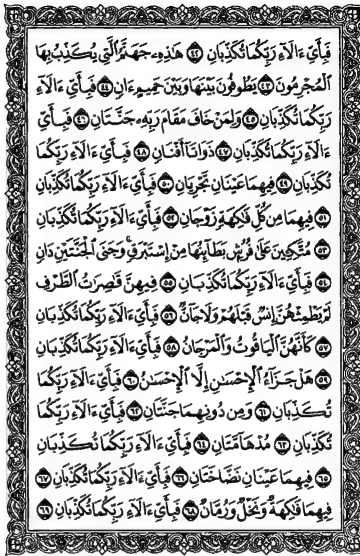 فَبِأَيِّ ءَالَآءِ رَبِّكُمَا تُكَذِّبَانِ ٤٢ هَٰذِهِۦ جَهَنَّمُ ٱلَّتِى يُكَذِّبُ بِهَا
ٱلْمُجْرِمُونَ ٤٣ يَطُوفُونَ بَيْنَهَا وَبَيْنَ حَمِيمٍ ءَانٍ ٤٤ فَبِأَيِّ ءَالَآءِ
رَبِّكُمَا تُكَذِّبَانِ ٤٥ وَلِمَنْ خَافَ مَقَامَ رَبِّهِۦ جَنَّتَانِ ٤٦ فَبِأَيِّ
ءَالَآءِ رَبِّكُمَا تُكَذِّبَانِ ٤٧ ذَوَاتَآ أَفْنَانٍ ٤٨ فَبِأَيِّ ءَالَآءِ رَبِّكُمَا
تُكَذِّبَانِ ٤٩ فِيهِمَا عَيْنَانِ تَجْرِيَانِ ٥٠ فَبِأَيِّ ءَالَآءِ رَبِّكُمَا تُكَذِّبَانِ
٥١ فِيهِمَا مِن كُلِّ فَٰكِهَةٍ زَوْجَانِ ٥٢ فَبِأَيِّ ءَالَآءِ رَبِّكُمَا تُكَذِّبَانِ
٥٣ مُتَّكِـِٔينَ عَلَىٰ فُرُشٍۭ بَطَآئِنُهَا مِنْ إِسْتَبْرَقٍ ۚ وَجَنَى ٱلْجَنَّتَيْنِ دَانٍ
٥٤ فَبِأَيِّ ءَالَآءِ رَبِّكُمَا تُكَذِّبَانِ ٥٥ فِيهِنَّ قَٰصِرَٰتُ ٱلطَّرْفِ
لَمْ يَطْمِثْهُنَّ إِنسٌ قَبْلَهُمْ وَلَا جَآنٌّ ٥٦ فَبِأَيِّ ءَالَآءِ رَبِّكُمَا تُكَذِّبَانِ
٥٧ كَأَنَّهُنَّ ٱلْيَاقُوتُ وَٱلْمَرْجَانُ ٥٨ فَبِأَيِّ ءَالَآءِ رَبِّكُمَا تُكَذِّبَانِ
٥٩ هَلْ جَزَآءُ ٱلْإِحْسَٰنِ إِلَّا ٱلْإِحْسَٰنُ ٦٠ فَبِأَيِّ ءَالَآءِ رَبِّكُمَا
تُكَذِّبَانِ ٦١ وَمِن دُونِهِمَا جَنَّتَانِ ٦٢ فَبِأَيِّ ءَالَآءِ رَبِّكُمَا
تُكَذِّبَانِ ٦٣ مُدْهَآمَّتَانِ ٦٤ فَبِأَيِّ ءَالَآءِ رَبِّكُمَا تُكَذِّبَانِ
٦٥ فِيهِمَا عَيْنَانِ نَضَّاخَتَانِ ٦٦ فَبِأَيِّ ءَالَآءِ رَبِّكُمَا تُكَذِّبَانِ ٦٧
فِيهِمَا فَٰكِهَةٌ وَنَخْلٌ وَرُمَّانٌ ٦٨ فَبِأَيِّ ءَالَآءِ رَبِّكُمَا تُكَذِّبَانِ ٦٩